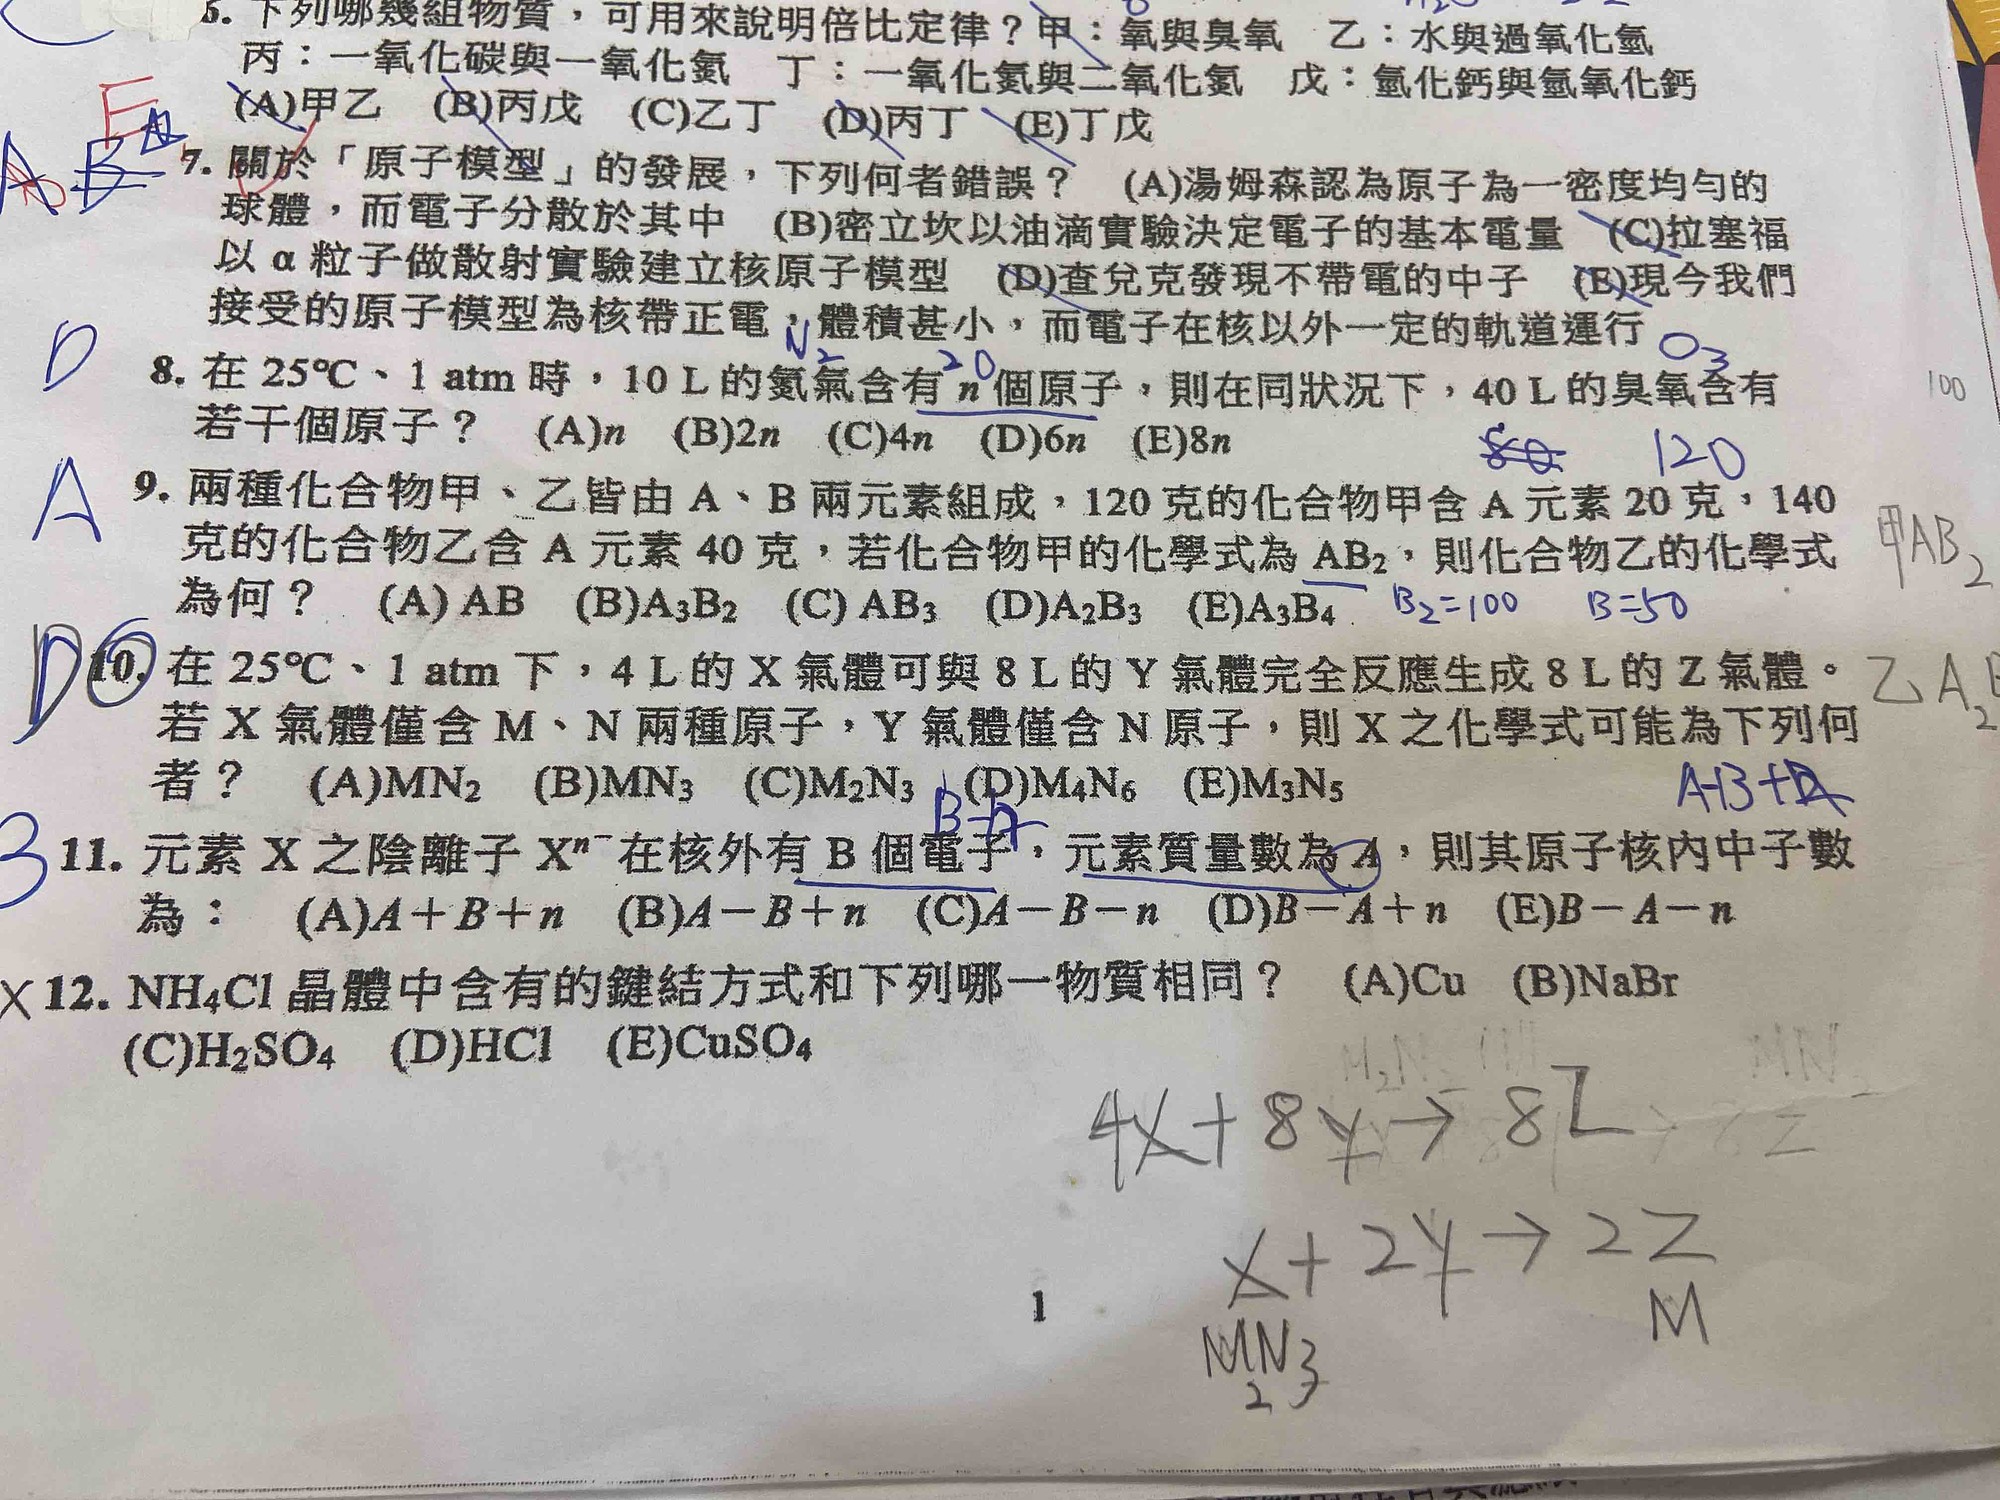 6. 下列哪幾組物質，可用來說明倍比定律？甲：氧與臭氧　乙：水與過氧化氫
丙：一氧化碳與一氧化氮　丁：一氧化氮與二氧化氮　戊：氫化鈣與氫氧化鈣
(A)甲乙　(B)丙戊　(C)乙丁　(D)丙丁　(E)丁戊
E
A B
7. 關於「原子模型」的發展，下列何者錯誤？　(A)湯姆森認為原子為一密度均勻的
球體，而電子分散於其中　(B)密立坎以油滴實驗決定電子的基本電量　(C)拉塞福
以 α 粒子做散射實驗建立核原子模型　(D)查兌克發現不帶電的中子　(E)現今我們
接受的原子模型為核帶正電，體積甚小，而電子在核以外一定的軌道運行
N₂ 20 O₃
D
8. 在 25℃、1 atm 時，10 L 的氮氣含有 n 個原子，則在同狀況下，40 L 的臭氧含有
100
若干個原子？　(A)n　(B)2n　(C)4n　(D)6n　(E)8n
120
A
9. 兩種化合物甲、乙皆由 A、B 兩元素組成，120 克的化合物甲含 A 元素 20 克，140
克的化合物乙含 A 元素 40 克，若化合物甲的化學式為 AB₂，則化合物乙的化學式
甲AB₂
為何？　(A) AB　(B)A₃B₂　(C) AB₃　(D)A₂B₃　(E)A₃B₄
B₂=100 B=50
D
10. 在 25℃、1 atm 下，4 L 的 X 氣體可與 8 L 的 Y 氣體完全反應生成 8 L 的 Z 氣體。
乙A₂B
若 X 氣體僅含 M、N 兩種原子，Y 氣體僅含 N 原子，則 X 之化學式可能為下列何
者？　(A)MN₂　(B)MN₃　(C)M₂N₃　(D)M₄N₆　(E)M₃N₅
B
11. 元素 X 之陰離子 Xⁿ⁻在核外有 B 個電子，元素質量數為 A，則其原子核內中子數
為：　(A)A＋B＋n　(B)A－B＋n　(C)A－B－n　(D)B－A＋n　(E)B－A－n
X
12. NH₄Cl 晶體中含有的鍵結方式和下列哪一物質相同？　(A)Cu　(B)NaBr
(C)H₂SO₄　(D)HCl　(E)CuSO₄
4X+8Y→8Z
X+2Y→2Z
M
MN₃
2
1